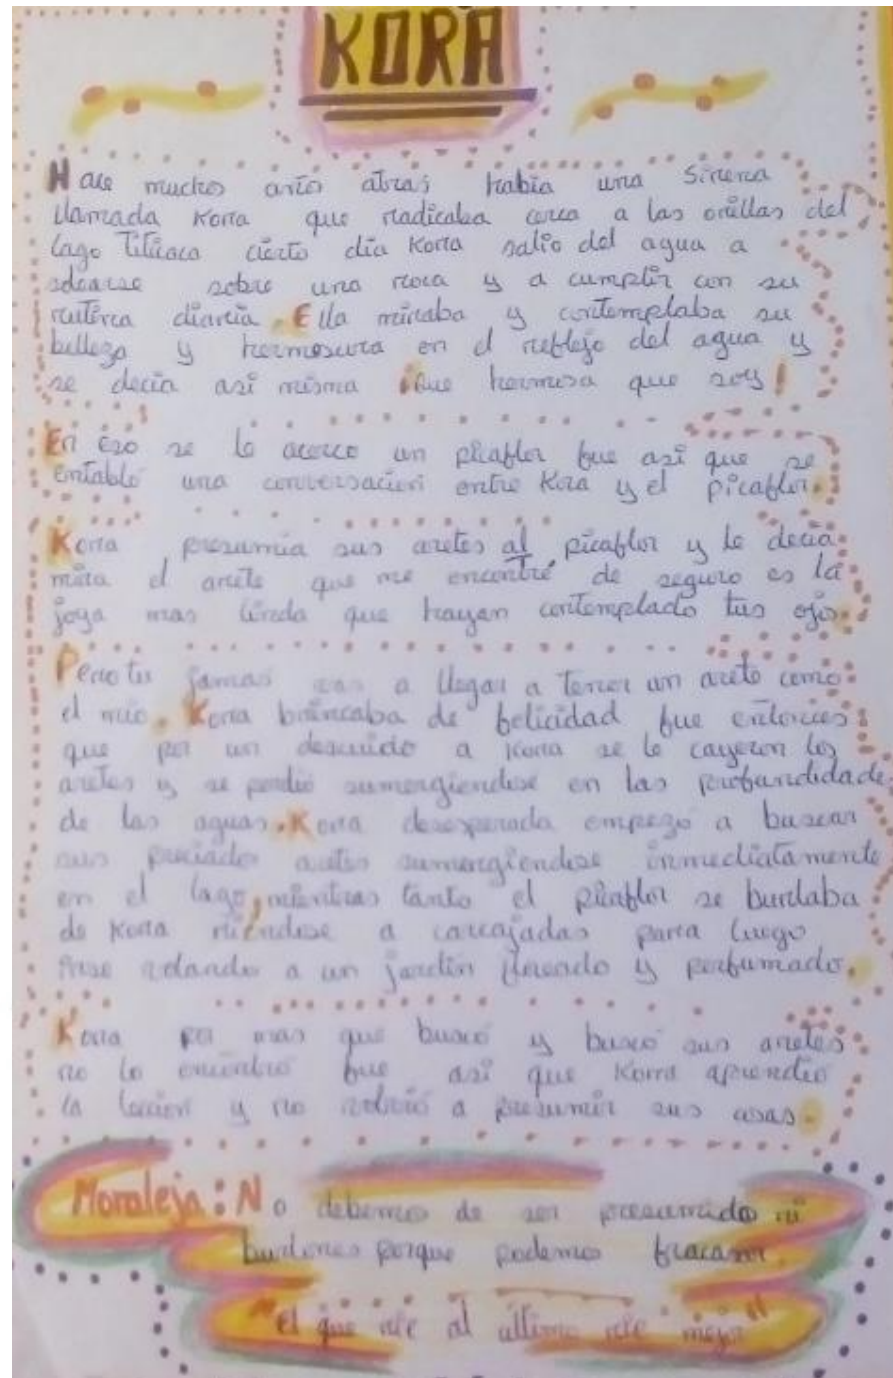 KORA
Hace muchos años atras había una Sirena
llamada Kora que radicaba cerca a las orillas del
lago Titicaca cierto día Kora salio del agua a
solearse sobre una roca y a cumplir con su
rutina diaria. Ella miraba y contemplaba su
belleza y hermosura en el reflejo del agua y
se decía así misma ¡Que hermosa que soy!
En eso se le acerco un picaflor fue así que se
entabló una conversación entre Kora y el picaflor.
Kora presumía sus aretes al picaflor y le decía
mira el arete que me encontré de seguro es la
joya mas linda que hayan contemplado tus ojo.
Pero tu jamas vas a llegar a tener un arete como
el mio. Kora brincaba de felicidad fue entonces
que por un descuido a Kora se le cayeron los
aretes y se perdió sumergiendose en las profundidades
de las aguas. Kora desesperada empezó a buscar
sus preciados aretes sumergiendose inmediatamente
en el lago, mientras tanto el picaflor se burlaba
de Kora riéndose a carcajadas para luego
irse volando a un jardín floreado y perfumado.
Kora por mas que buscó y buscó sus aretes
no lo encontró fue así que Kora aprendio
la leccion y no volvió a presumir sus cosas.
Moraleja: No debemos de ser presumido ni
burlones porque podemos fracasar.
"el que ríe al último ríe mejor"